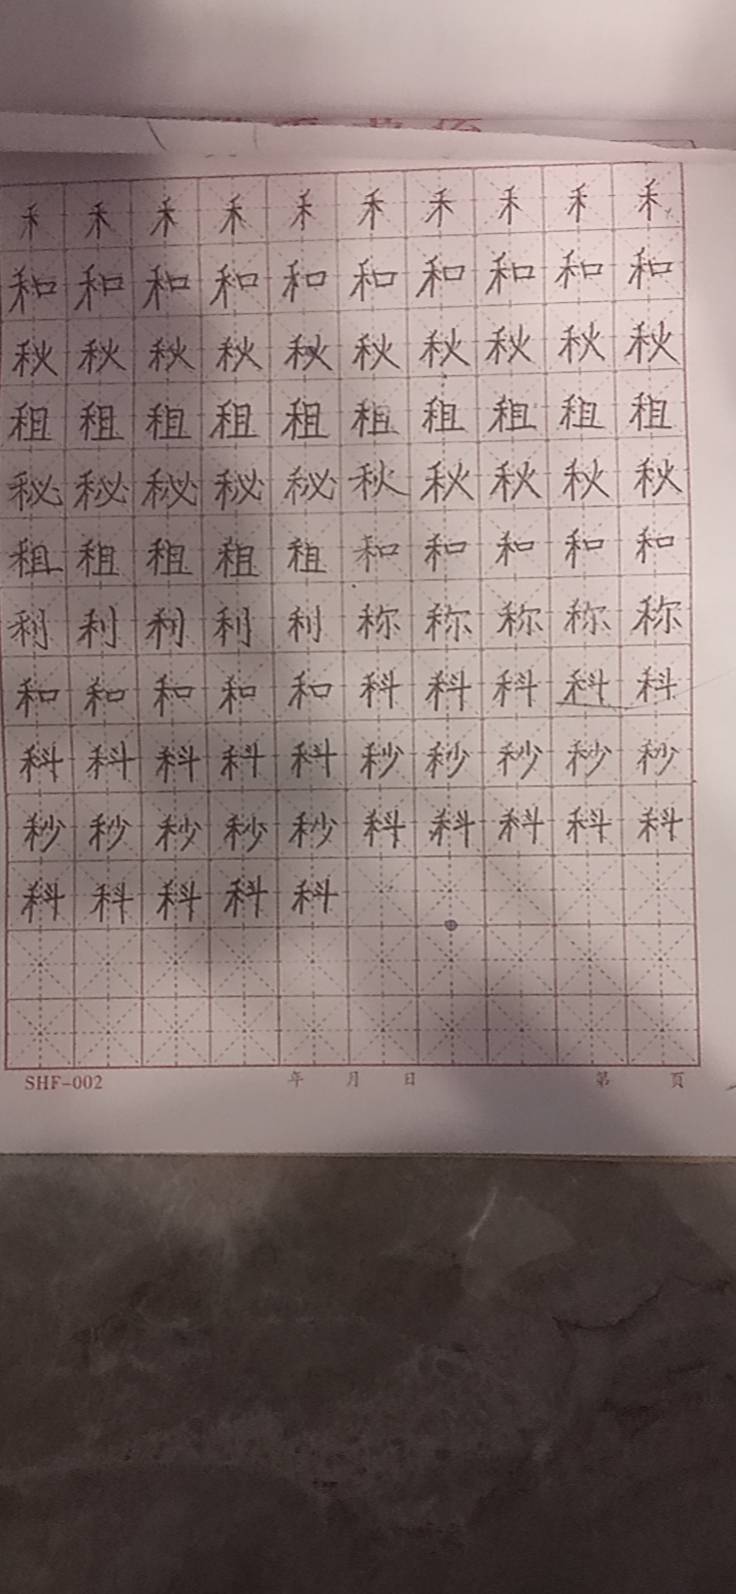 禾禾禾禾禾禾禾禾禾禾
和和和和和和和和和和
秋秋秋秋秋秋秋秋秋秋
租租租租租租租租租租
秘秘秘秘秘秋秋秋秋秋
租租租租租和和和和和
利利利利利称称称称称
和和和和和科科科科科
科科科科科秒秒秒秒秒
秒秒秒秒秒科科科科科
科科科科科
SHF-002 年 月 日 第 頁